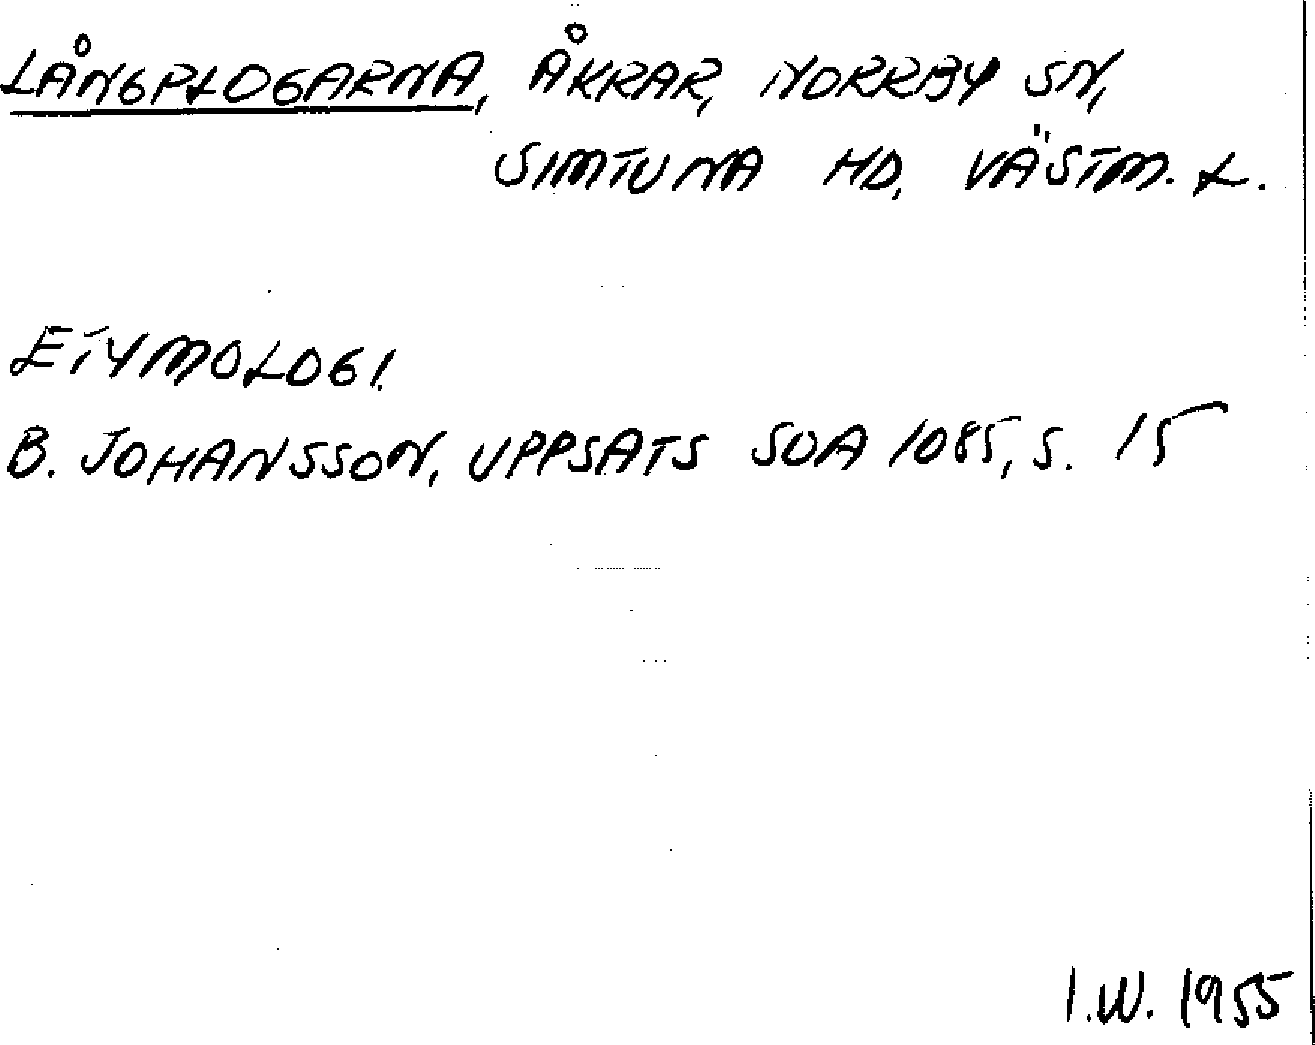 LÅNGPLOGARNA, ÅKRAR, NORRBY SN,
SIMTUNA HD, VÄSTM. L.
ETYMOLOGI.
B. JOHANSSON, UPPSATS SOA 1085, S. 15
I.W. 1955